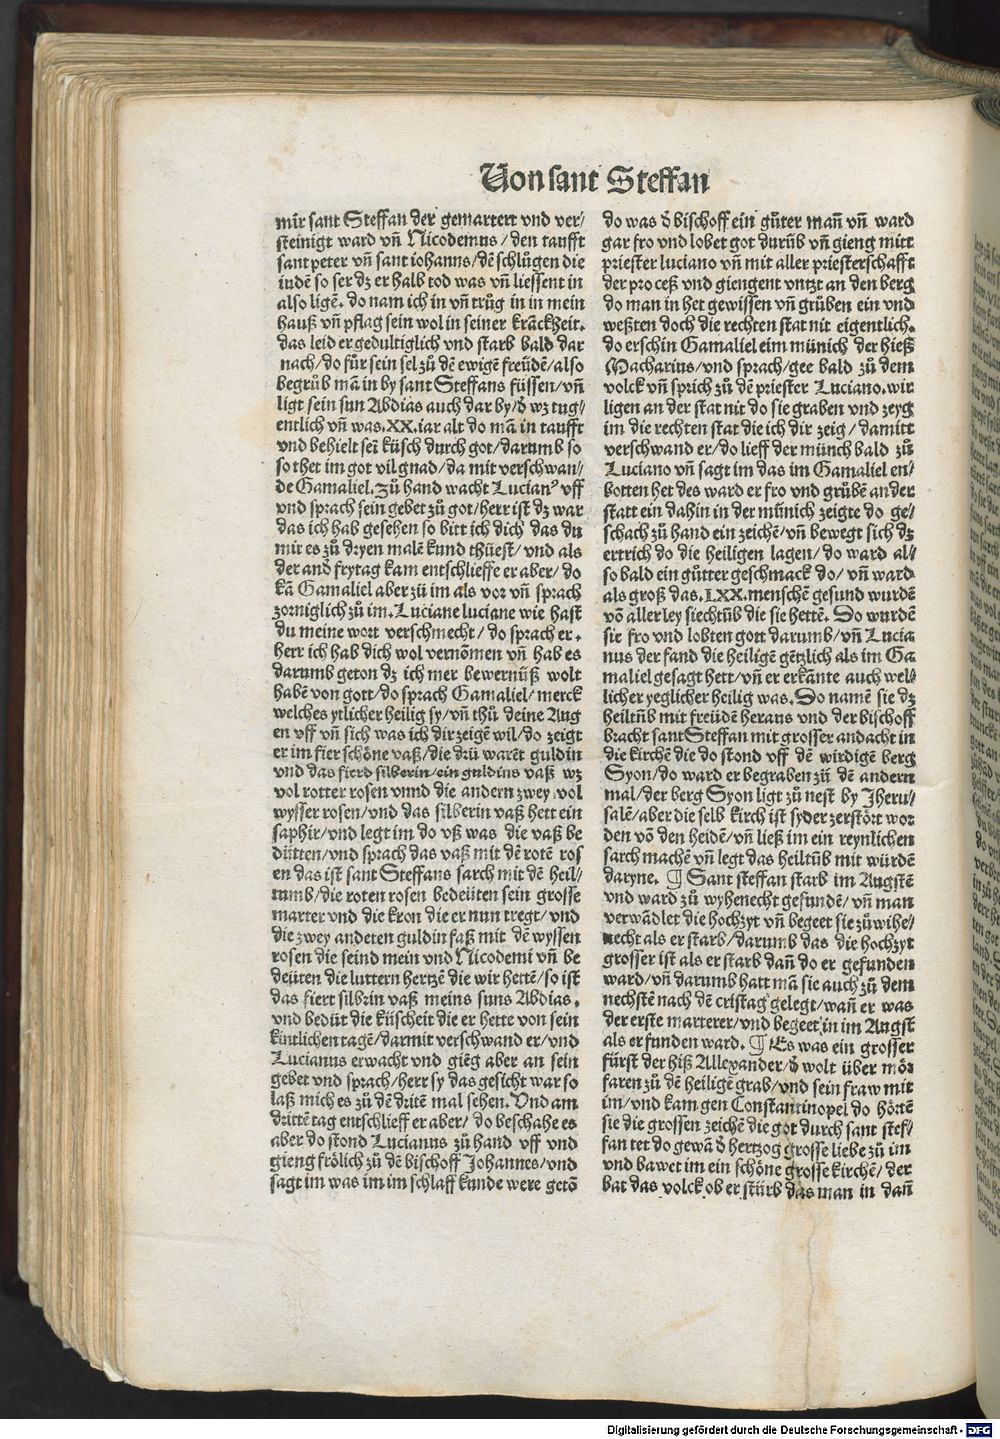 Von sant Steffan
mir sant Steffan der gemartert vnd ver/
steinigt ward vñ Nicodemus / den taufft
sant peter vñ sant iohanns / dē schlůgen die
iudē so ser dz er halb tod was vñ liessent in
also ligē. do nam ich in vñ trůg in in mein
hauß vñ pflag sein wol in seiner krāckheit.
das leid er gedultiglich vnd starb bald dar
nach / do fůr sein sel zů dē ewigē freüdē / also
begrůb mā in by sant Steffans füssen / vñ
ligt sein sun Abdias auch dar by / d̕ wz tug/
entlich vñ was .XX. iar alt do mā in taufft
vnd behielt sei küsch durch got / darumb so
so thet im got vil gnad / da mit verschwan/
de Gamaliel. Zů hand wacht Lucianꝰ vff
vnd sprach sein gebet zů got / herr ist dz war
das ich hab gesehen so bitt ich dich das du
mir es zů dryen malē kund thüest / vnd als
der and frytag kam entschlieffe er aber / do
kā Gamaliel aber zů im als vor vñ sprach
zorniglich zů im. Luciane luciane wie hast
du meine wort verschmecht / do sprach er.
herr ich hab dich wol vernōmen vñ hab es
darumb geton dz ich mer bewernüß wolt
habē von gott / do sprach Gamaliel / merck
welches ytlicher heilig sy / vñ thů deine Aug
en vff vñ sich was ich dir zeigē wil / do zeigt
er im fier schöne vaß / die drü warēt guldin
vnd das fierd silberin / ein guldins vaß wz
vol rotter rosen vnnd die andern zwey vol
wysser rosen / vnd das silberin vaß hett ein
saphir / vnd legt im do vß was die vaß be
dütten / vnd sprach das vaß mit dē rotē ros
en das ist sant Steffans sarch mit dē heil/
tumb / die roten rosen bedeüten sein grosse
marter vnd die kron die er nun tregt / vnd
die zwey anderen guldin faß mit dē wyssen
rosen die seind mein vnd Nicodemi vñ be
deüten die luttern hertzē die wir hettē / so ist
das fiert silbrin vaß meins suns Abdias.
vnd bedüt die küscheit die er hette von sein
kintlichen tagē / darmit verschwand er / vnd
Lucianus erwacht vnd giēg aber an sein
gebet vnd sprach / herr sy das gesicht war so
laß mich es zů dē dritē mal sehen. Vnd am
drittē tag entschlieff er aber / do beschahe es
aber do stond Lucianus zů hand vff vnd
gieng frölich zů dē bischoff Johannes / vnd
sagt im was im im schlaff kunde were getō
do was d̕ bischoff ein gůter mañ vñ ward
gar fro vnd lobet got durūb vñ gieng mitt
priester luciano vñ mit aller priesterschafft
der proceß vnd giengent vntzt an den berg
do man in het gewissen vñ grůben ein vnd
weßten doch die rechten stat nit eigentlich.
do erschin Gamaliel eim münich der hieß
Macharius / vnd sprach / gee bald zů dem
volck vñ sprich zů dē priester Luciano. wir
ligen an der stat nit do sie graben vnd zeyg
im die rechten stat die ich dir zeig / damitt
verschwand er / do lieff der münch bald zů
Luciano vñ sagt im das im Gamaliel en/
botten het des ward er fro vnd grůbē an der
statt ein dahin in der münich zeigte do ge/
schach zů hand ein zeichē / vñ bewegt sich dz
ertrich do die heiligen lagen / do ward al/
so bald ein gütter geschmack do / vñ ward
als groß das .LXX. menschē gesund wurdē
vō allerley siechtūb die sie hettē. Do wurdē
sie fro vnd lobten gott darumb / vñ Lucia
nus der fand die heiligē gētzlich als im Ga
maliel gesagt hett / vñ er erkāte auch wel/
licher yeglicher heilig was. Do namē sie dz
heiltūb mit freüdē heraus vnd der bischoff
bracht sant Steffan mit grosser andacht in
die kirchē die do stond vff dē wirdigē berg
Syon / do ward er begraben zū dē andern
mal / der berg Syon ligt zů nest by Jheru/
salē / aber die selb kirch ist syder zerstört wor
den vō den heidē / vñ ließ im ein reynlichen
sarch machē vñ legt das heiltūb mit würdē
daryne. ¶ Sant steffan starb im Augstē
vnd ward zů wyhenecht gefundē / vñ man
verwādlet die hochzyt vñ begeet sie zů wihe/
necht als er starb / darumb das die hochzyt
grosser ist als er starb dañ do er gefunden
ward / vñ darumb hatt mā sie auch zů dem
nechstē nach dē cristag gelegt / wañ er was
der erste marterer / vnd begeet in im Augst
als er funden ward. ¶ Es was ein grosser
fürst der hiß Allexander / d̕ wolt über mör
faren zů dē heiligē grab / vnd sein fraw mit
im / vnd kam gen Constantinopel do hörtē
sie die grossen zeichē die got durch sant stef/
fan tet do gewā d̕ hertzog grosse liebe zů im
vnd bawet im ein schöne grosse kirchē / der
bat das volck ob er stürb das man in dañ
Digitalisierung gefördert durch die Deutsche Forschungsgemeinschaft - DFG